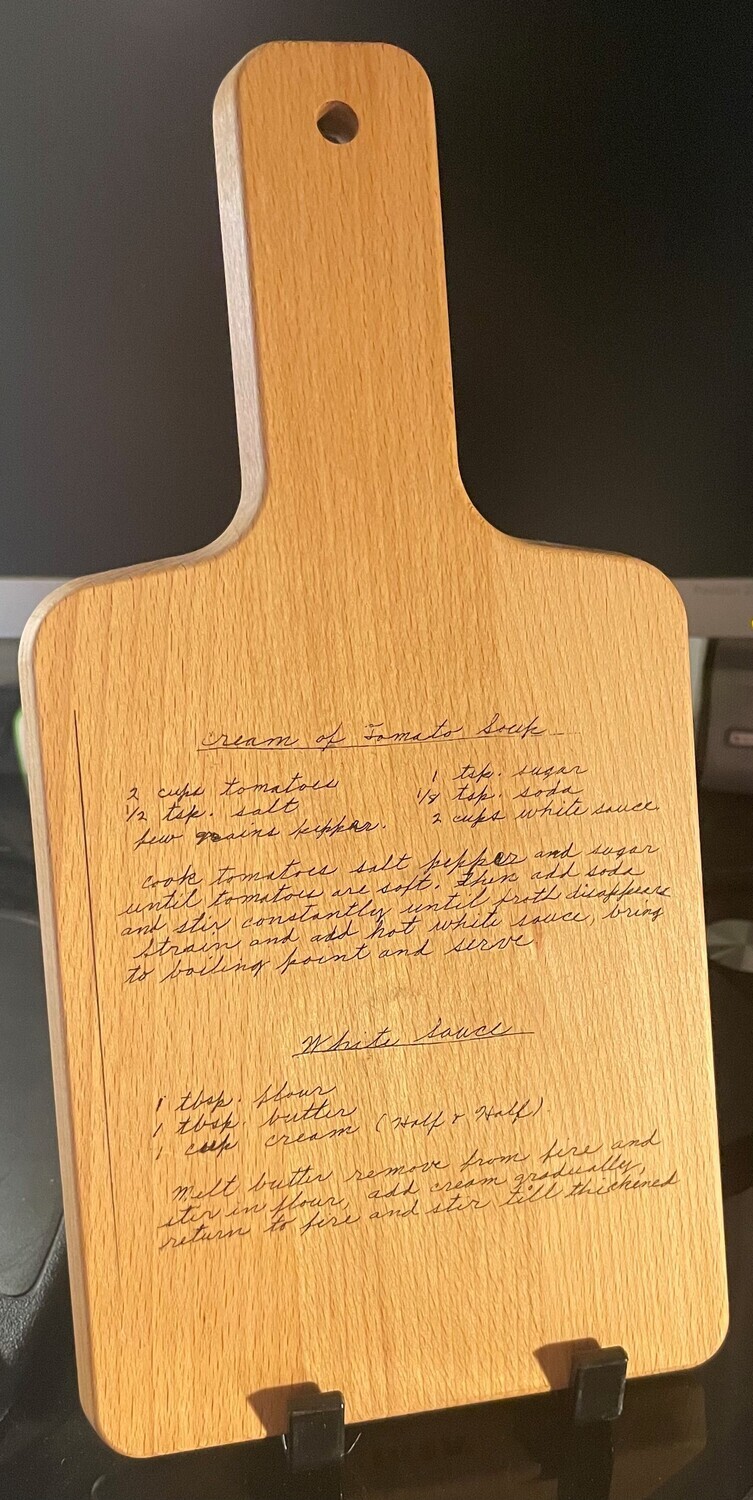 Cream of Tomato Soup
2 cups tomatoes 1 tsp. sugar
1/2 tsp. salt 1/8 tsp. soda
few grains pepper. 2 cups white sauce
Cook tomatoes salt pepper and sugar
until tomatoes are soft. Then add soda
and stir constantly until froth disappears
strain and add hot white sauce, bring
to boiling point and serve
White Sauce
1 tbsp. flour
1 tbsp. butter
1 cup cream (Half & Half)
Melt butter remove from fire and
stir in flour, add cream gradually,
return to fire and stir till thickened